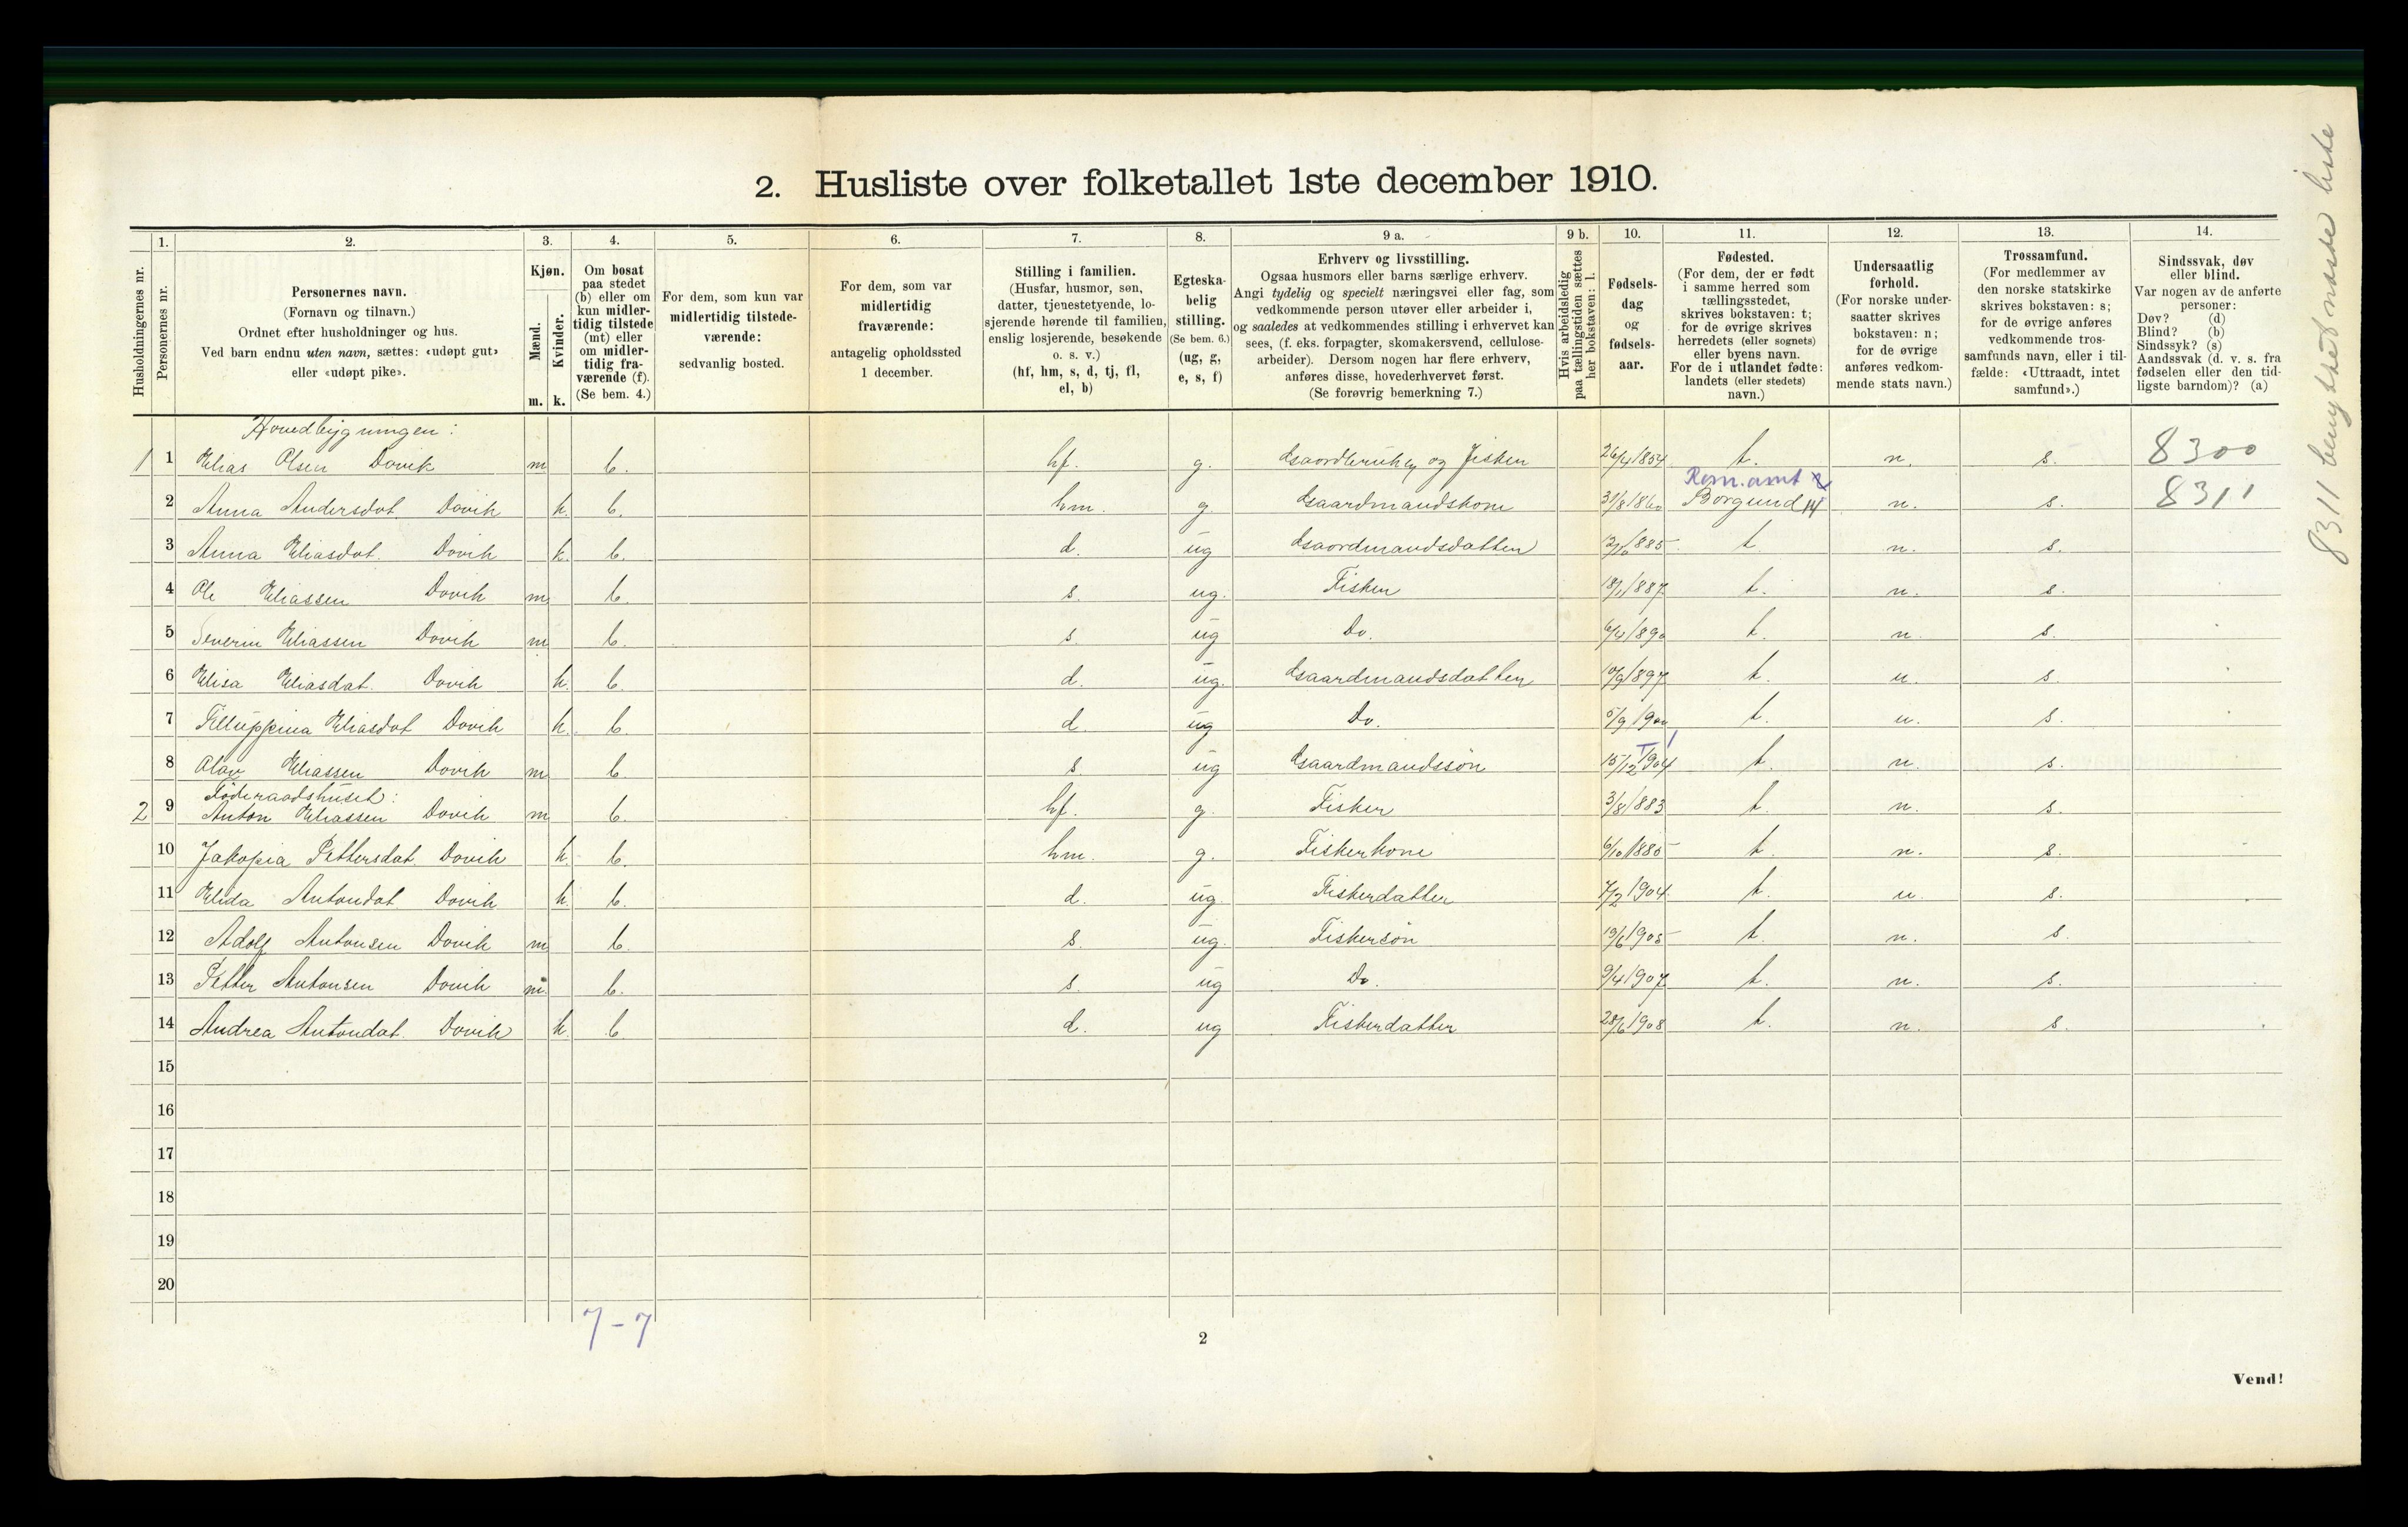 2. Husliste over folketallet 1ste december 1910.
8311 benyttet næste liste
Husholdningernes nr.
1. Personernes nr.
2. Personernes navn. (Fornavn og tilnavn.) Ordnet efter husholdninger og hus. Ved barn endnu uten navn, sættes: «udøpt gut» eller «udøpt pike».
3. Kjøn. Mænd. m. Kvinder. k.
4. Om bosat paa stedet (b) eller om kun midlertidig tilstede (mt) eller om midlertidig fraværende (f). (Se bem. 4.)
5. For dem, som kun var midlertidig tilstedeværende: sedvanlig bosted.
6. For dem, som var midlertidig fraværende: antagelig opholdssted 1 december.
7. Stilling i familien. (Husfar, husmor, søn, datter, tjenestetyende, losjerende hørende til familien, enslig losjerende, besøkende o. s. v.) (hf, hm, s, d, tj, fl, el, b)
8. Egteskabelig stilling. (Se bem. 6.) (ug, g, e, s, f)
9 a. Erhverv og livsstilling. Ogsaa husmors eller barns særlige erhverv. Angi tydelig og specielt næringsvei eller fag, som vedkommende person utøver eller arbeider i, og saaledes at vedkommendes stilling i erhvervet kan sees, (f. eks. forpagter, skomakersvend, cellulosearbeider). Dersom nogen har flere erhverv, anføres disse, hovederhvervet først. (Se forøvrig bemerkning 7.)
9 b. Hvis arbeidsledig paa tællingstiden sættes her bokstaven: l.
10. Fødselsdag og fødselsaar.
11. Fødested. (For dem, der er født i samme herred som tællingsstedet, skrives bokstaven: t; for de øvrige skrives herredets (eller sognets) eller byens navn. For de i utlandet fødte: landets (eller stedets) navn.)
12. Undersaatlig forhold. (For norske undersaatter skrives bokstaven: n; for de øvrige anføres vedkommende stats navn.)
13. Trossamfund. (For medlemmer av den norske statskirke skrives bokstaven: s; for de øvrige anføres vedkommende trossamfunds navn, eller i tilfælde: «Uttraadt, intet samfund».)
14. Sindssvak, døv eller blind. Var nogen av de anførte personer: Døv? (d) Blind? (b) Sindssyk? (s) Aandssvak (d. v. s. fra fødselen eller den tidligste barndom)? (a)
Hovedbygningen:
1 1 Elias Olsen Dovik m b. hf. g. Gaardbruker og Fisker 26/4 1854 t. n. s. 8300
Rom.amt
2 Anna Andersdat. Dovik k. b. hm. g. Gaardmandskone 31/8 1860 Borgund n. s. 8311
3 Anna Eliasdat. Dovik k. b. d. ug Gaardmandsdatter 12/10 1885 t. n. s.
4 Ole Eliassen Dovik m b. s. ug. Fisker 18/1 1887 t. n. s.
5 Severin Eliassen Dovik m b. s. ug Do. 6/4 1890 t. n. s.
6 Elisa Eliasdat. Dovik k. b. d. ug. Gaardmandsdatter 10/9 1897 t. n. s.
7 Filluppina Eliasdat Dovik k. b. d. ug Do. 5/9 1900 t. n. s.
8 Olav Eliassen Dovik m b. s. ug Gaardmandssön 15/12 1904 t. n. s.
Föderaadshuset:
2 9 Anton Eliassen Dovik m b. hf. g. Fisker 3/8 1883 t. n. s.
10 Jakopia Pettersdat. Dovik k. b. hm. g. Fiskerkone 6/10 1885 t. n. s.
11 Elida Antondat Dovik k. b. d. ug. Fiskerdatter 7/2 1904 t. n. s.
12 Adolf Antonsen Dovik m b. s. ug. Fiskersön 19/6 1905 t. n. s.
13 Petter Antonsen Dovik m. b. s. ug Do. 9/4 1907 t. n. s.
14 Andrea Antondat. Dovik k. b. d. ug Fiskerdatter 28/6 1908 t. n. s.
15
16
17
18
19
20
7-7
2
Vend!